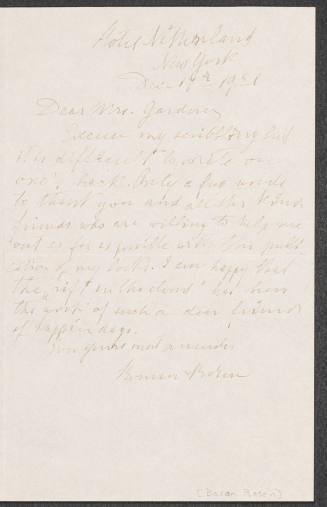 Hotel Netherland
New York
Dec 19th 1921
Dear Mrs. Gardner,
Excuse my scribbling but
it is difficult to write on
one's back. Only a few words
to thank you and all the kind
friends who are willing to help me
out as far as possible with the publi
cation of my book. I am happy that
the "rift in the cloud" has been
the work of such a dear friend
of happier days.
Yours most sincerely
Baron Rosen
[Baron Rosen]